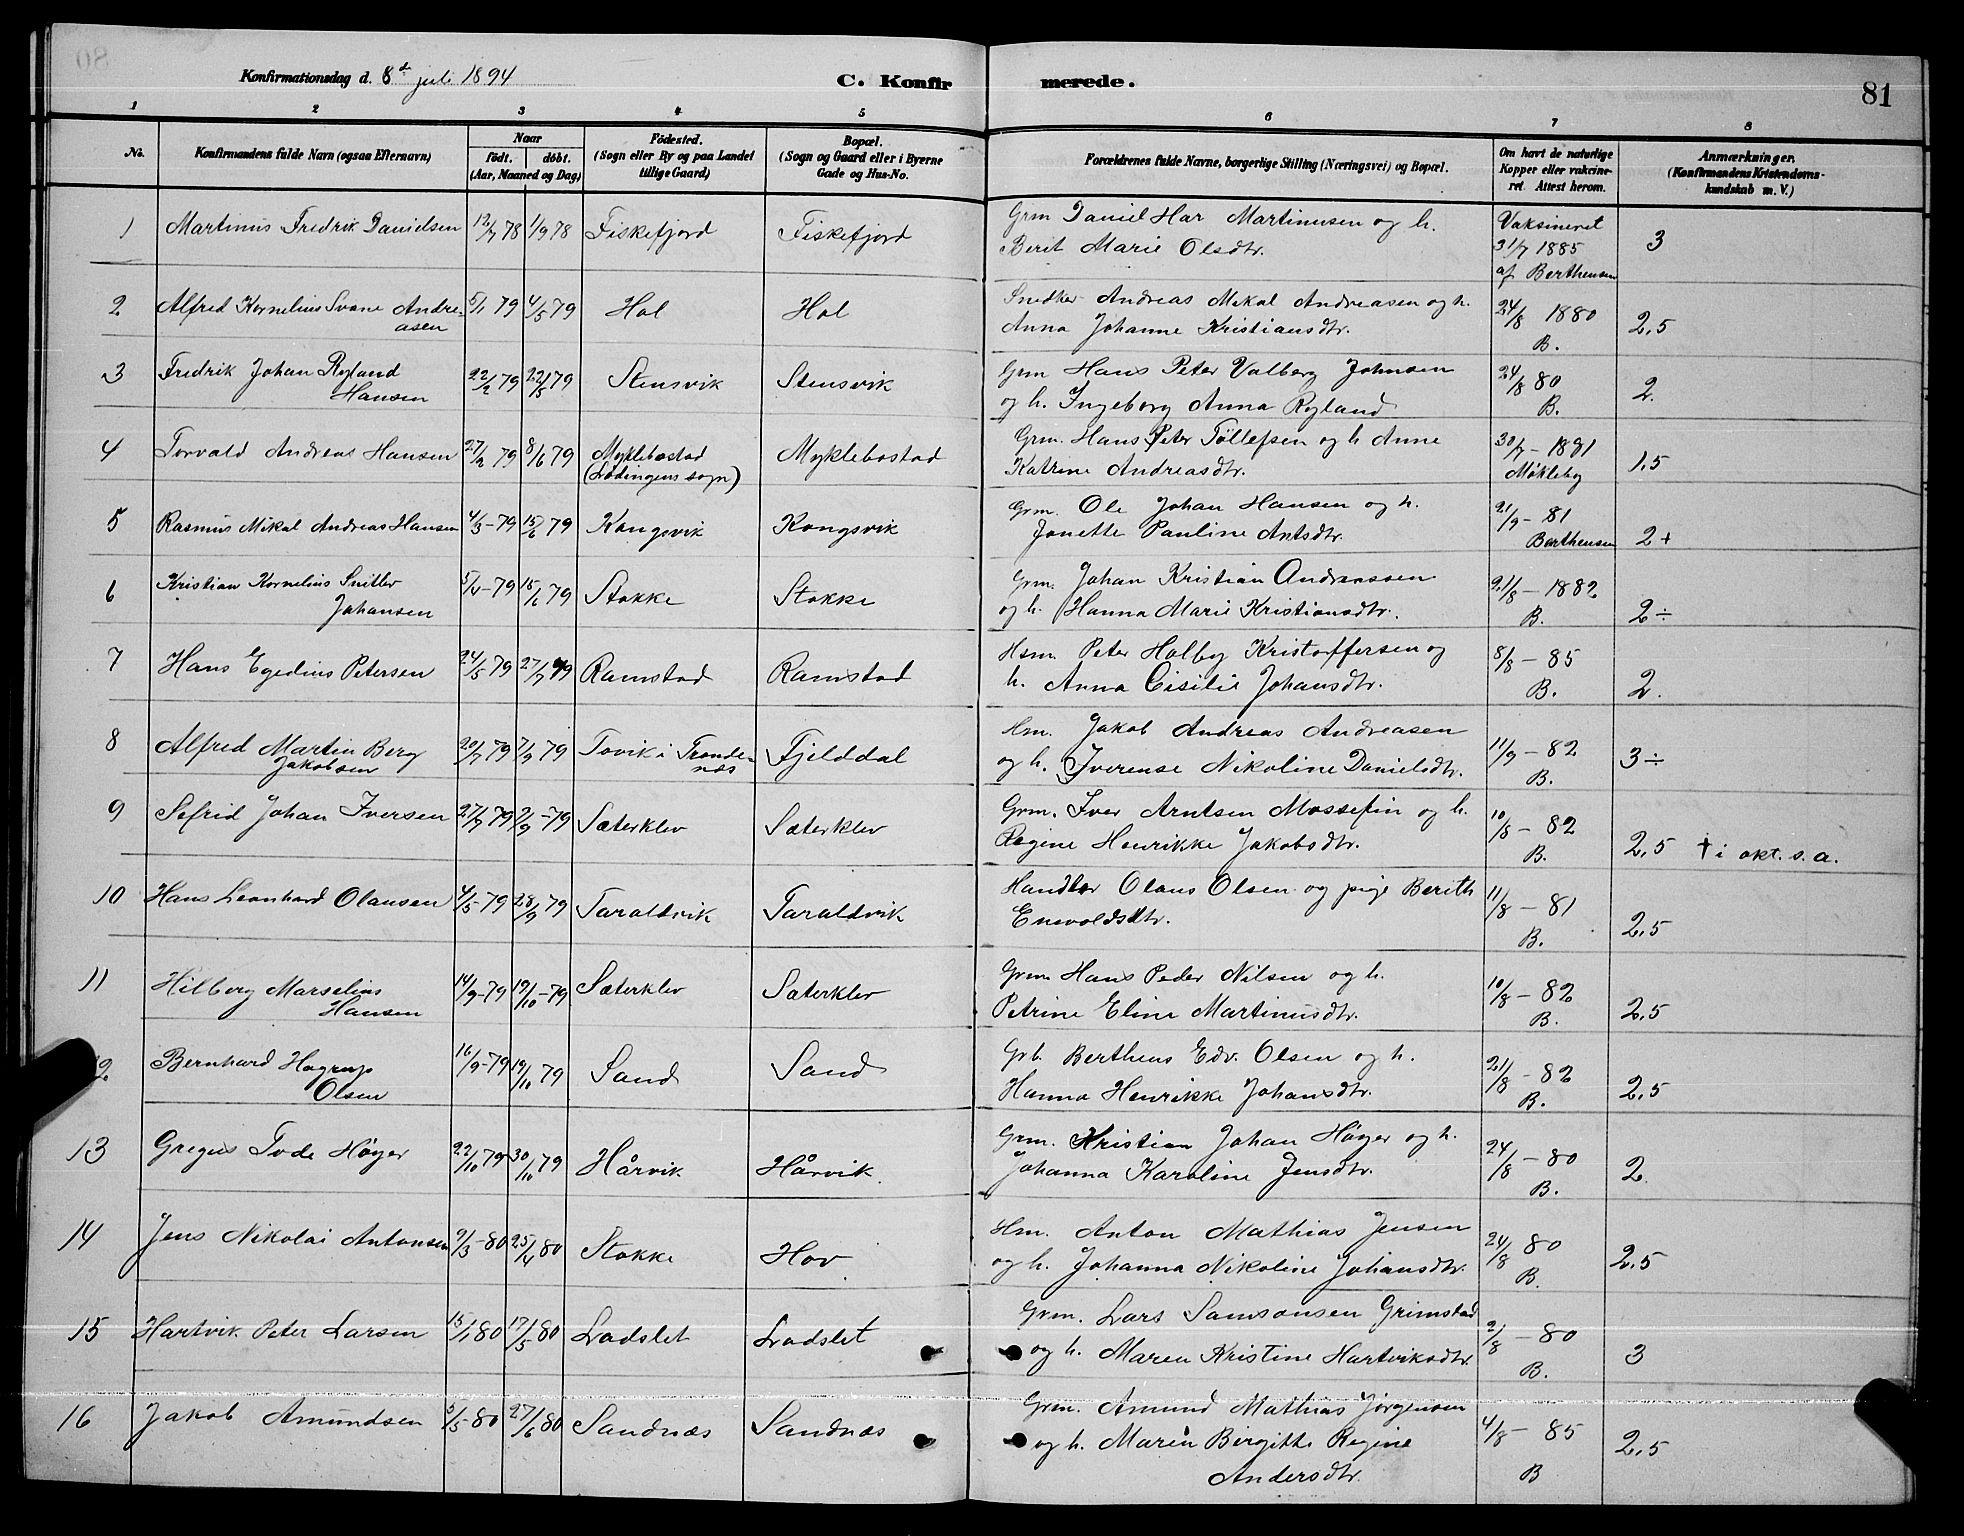 Konfirmationsdag d. 8de juli 1894 C. Konfir merede. 81
1 2 3 4 5 6 7 8
No. Konfirmandens fulde Navn (ogsaa Efternavn) Naar født. døbt. (Aar, Maaned og Dag) Fødested. (Sogn eller By og paa Landet tillige Gaard) Bopæl. (Sogn og Gaard eller i Byerne Gade og Hus-No. Forældrenes fulde Navne, borgerlige Stilling (Næringsvei) og Bopæl. Om havt de naturlige Kopper eller vakcineret. Attest herom. Anmærkninger. (Konfirmandens Kristendomskundskab m. V.)
1 Martinus Fredrik Danielsen 12/7 78 1/9 78 Fiskefjord Fiskefjord Grm Daniel Har Martinusen og h. Vaksineret 3
Berit Marie Olsdtr. 31/7 1885
af Berthensen
2 Alfred Kornelius Svane Andre- 5/1 79 4/5 79 Hol Hol Snedker Andreas Mikal Andreasen og h. 24/8 1880 2,5
asen Anna Johanne Kristiansdtr. B.
3 Fredrik Johan Ryland 22/2 79 22/5 79 Stensvik Stensvik Grm Hans Peter Valberg Johnsen 24/8 80 2.
Hansen og h. Ingeborg Anna Ryland B.
4 Torvald Andreas Hansen 27/2 79 8/6 79 Myklebostad Myklebostad Grm. Hans Peter Tøllefsen og h Anne 30/7 - 1881 1,5
(Lødingens sogn) Katrine Andreasdtr. Møkleby
5 Rasmus Mikal Andreas Hansen 4/3 - 79 15/6 79 Kongsvik Kongsvik Grm. Ole Johan Hansen og h. 21/9 - 81 2+
Jonette Pauline Antsdtr. Berthensen
6 Kristian Kornelius Snitlev 5/4 - 79 15/6 79 Stokke Stokke Grm. Johan Kristian Andreassen 21/8 - 1882 2÷
Johansen og h. Hanna Marie Kristiansdtr. B.
7 Hans Egedius Petersen 24/5 79 27/7 79 Ramstad Ramstad Hsm. Peter Holby Kristoffersen og 8/8 - 85 2.
h. Anna Cisilie Johansdtr. B.
8 Alfred Martin Berg 20/7 79 7/9 79 Tovik i Tronde- Fjelddal Hm. Jakob Andreas Andreasen 11/9 - 82 3÷
Jakobsen næs og h. Iverense Nikoline Danielsdtr. B.
9 Sefrid Johan Iversen 27/7 79 2/9 - 79 Sæterklev Sæterklev Grm. Iver Arntsen Mossefin og h. 10/8 - 82 2,5 † i okt. s. a.
Regine Henrikke Jakobsdtr. B.
10 Hans Leonhard Olausen 4/5 79 28/9 79 Taraldvik Taraldvik Handler Olaus Olsen og pige Berith 11/8 - 81 2,5
Enevoldsdtr. B.
11 Hilberg Marselius 14/9 - 79 19/10 - 79 Sæterklev Sæterklev Grm Hans Peder Nilsen og h. 10/8 - 82 2,5
Hansen Petrine Eline Martinusdtr. B.
12 Bernhard Hagrup 16/9 - 79 19/10 79 Sand Sand Grb. Bertheus Edv. Olsen og h. 21/8 - 82 2,5
Olsen Hanna Henrikke Johansdtr. B.
13 Gregus Tode Høyer 22/10 79 30/10 79 Hårvik Hårvik. Grm. Kristian Johan Høyer og h. 24/8 - 80 2
Johanna Karoline Jensdtr. B.
14 Jens Nikolai Antonsen 9/3 - 80 25/4 80 Stokke Hov Hm. Anton Mathias Jensen 24/8 80 2,5
og h. Johanna Nikoline Johansdtr. B.
15 Hartvik Peter Larsen 15/1 80 17/5 80 Ladslet Ladslet Grm. Lars Samsonsen Grimstad 2/8 - 80 3
og h. Maren Kristine Hartviksdtr. B.
16 Jakob Amundsen 5/5 80 27/6 80 Sandnæs Sandnæs Grm. Amund Mathias Jørgensen 4/8 - 85 2,5
og h. Maren Birgitte Regine B
Andersdtr.